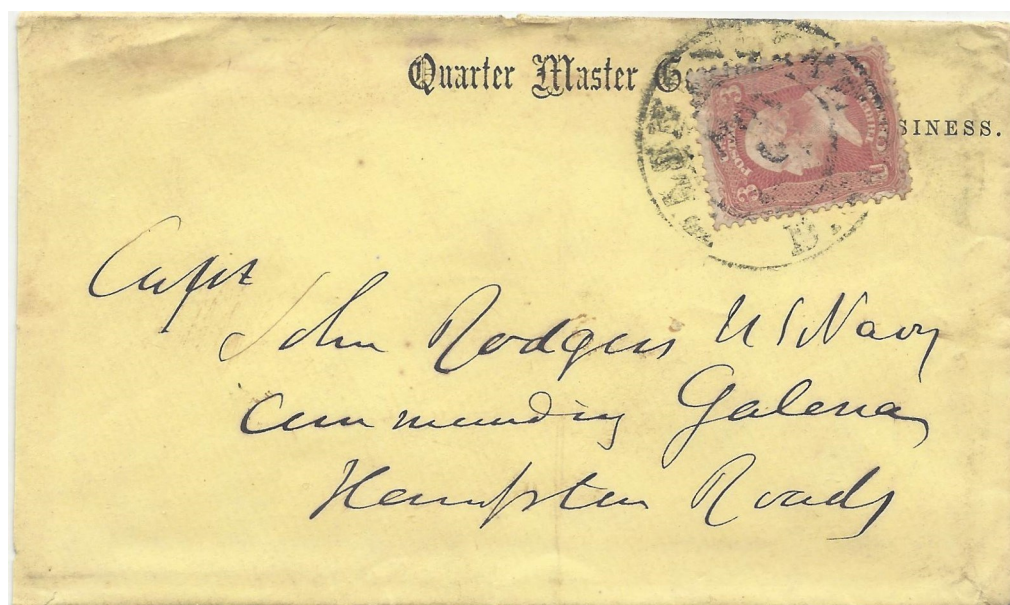 Quarter Master
SINESS.
Capt
John Rodgers U S Navy
Commanding Galena
Hampton Roads